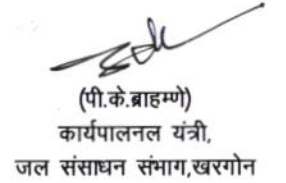 (पी.के.ब्राहम्णे)
कार्यपालनल यंत्री,
जल संसाधन संभाग,खरगोन